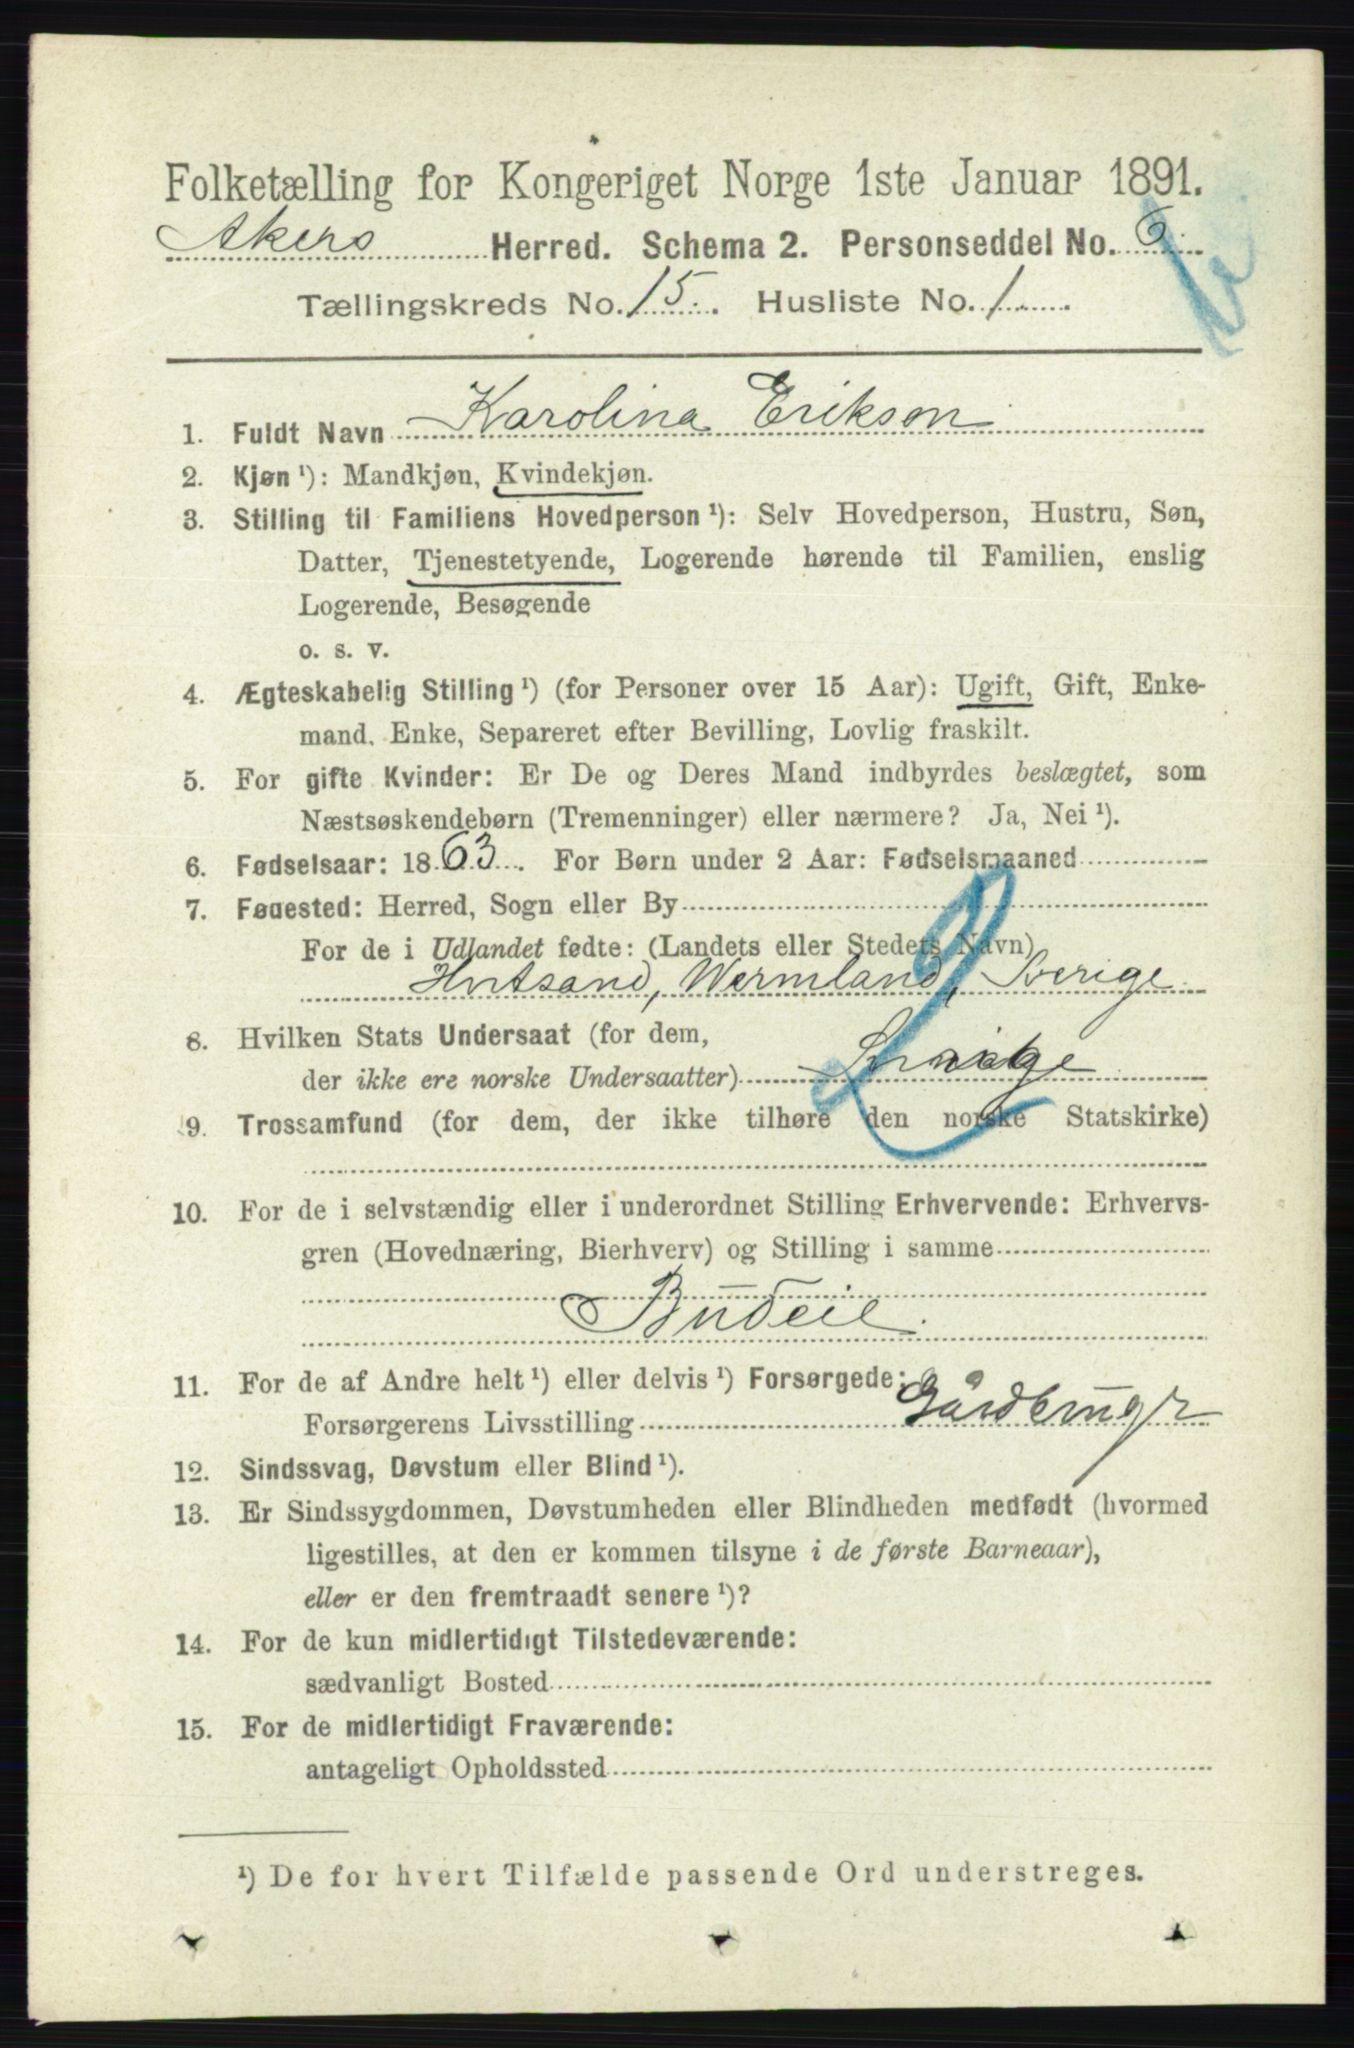 Folketælling for Kongeriget Norge 1ste Januar 1891.
Akers Herred. Schema 2. Personseddel No. 6.
Tællingskreds No. 15. Husliste No. 1
1. Fuldt Navn Karolina Erikson
2. Kjøn ¹): Mandkjøn, Kvindekjøn.
3. Stilling til Familiens Hovedperson ¹): Selv Hovedperson, Hustru, Søn,
Datter, Tjenestetyende, Logerende hørende til Familien, enslig
Logerende, Besøgende
o. s. v.
4. Ægteskabelig Stilling ¹) (for Personer over 15 Aar): Ugift, Gift, Enke-
mand, Enke, Separeret efter Bevilling, Lovlig fraskilt.
5. For gifte Kvinder: Er De og Deres Mand indbyrdes beslægtet, som
Næstsøskendebørn (Tremenninger) eller nærmere? Ja, Nei ¹).
6. Fødselsaar: 1863. For Børn under 2 Aar: Fødselsmaaned
7. Fødested: Herred, Sogn eller By
For de i Udlandet fødte: (Landets eller Stedets Navn)
Wermland, Sverige
8. Hvilken Stats Undersaat (for dem,
der ikke ere norske Undersaatter)
9. Trossamfund (for dem, der ikke tilhøre den norske Statskirke)
10. For de i selvstændig eller i underordnet Stilling Erhvervende: Erhvervs-
gren (Hovednæring, Bierhverv) og Stilling i samme
Budeie.
11. For de af Andre helt ¹) eller delvis ¹) Forsørgede:
Forsørgerens Livsstilling Gårdbruger
12. Sindssvag, Døvstum eller Blind ¹).
13. Er Sindssygdommen, Døvstumheden eller Blindheden medfødt (hvormed
ligestilles, at den er kommen tilsyne i de første Barneaar),
eller er den fremtraadt senere ¹)?
14. For de kun midlertidigt Tilstedeværende:
sædvanligt Bosted
15. For de midlertidigt Fraværende:
antageligt Opholdssted
¹) De for hvert Tilfælde passende Ord understreges.